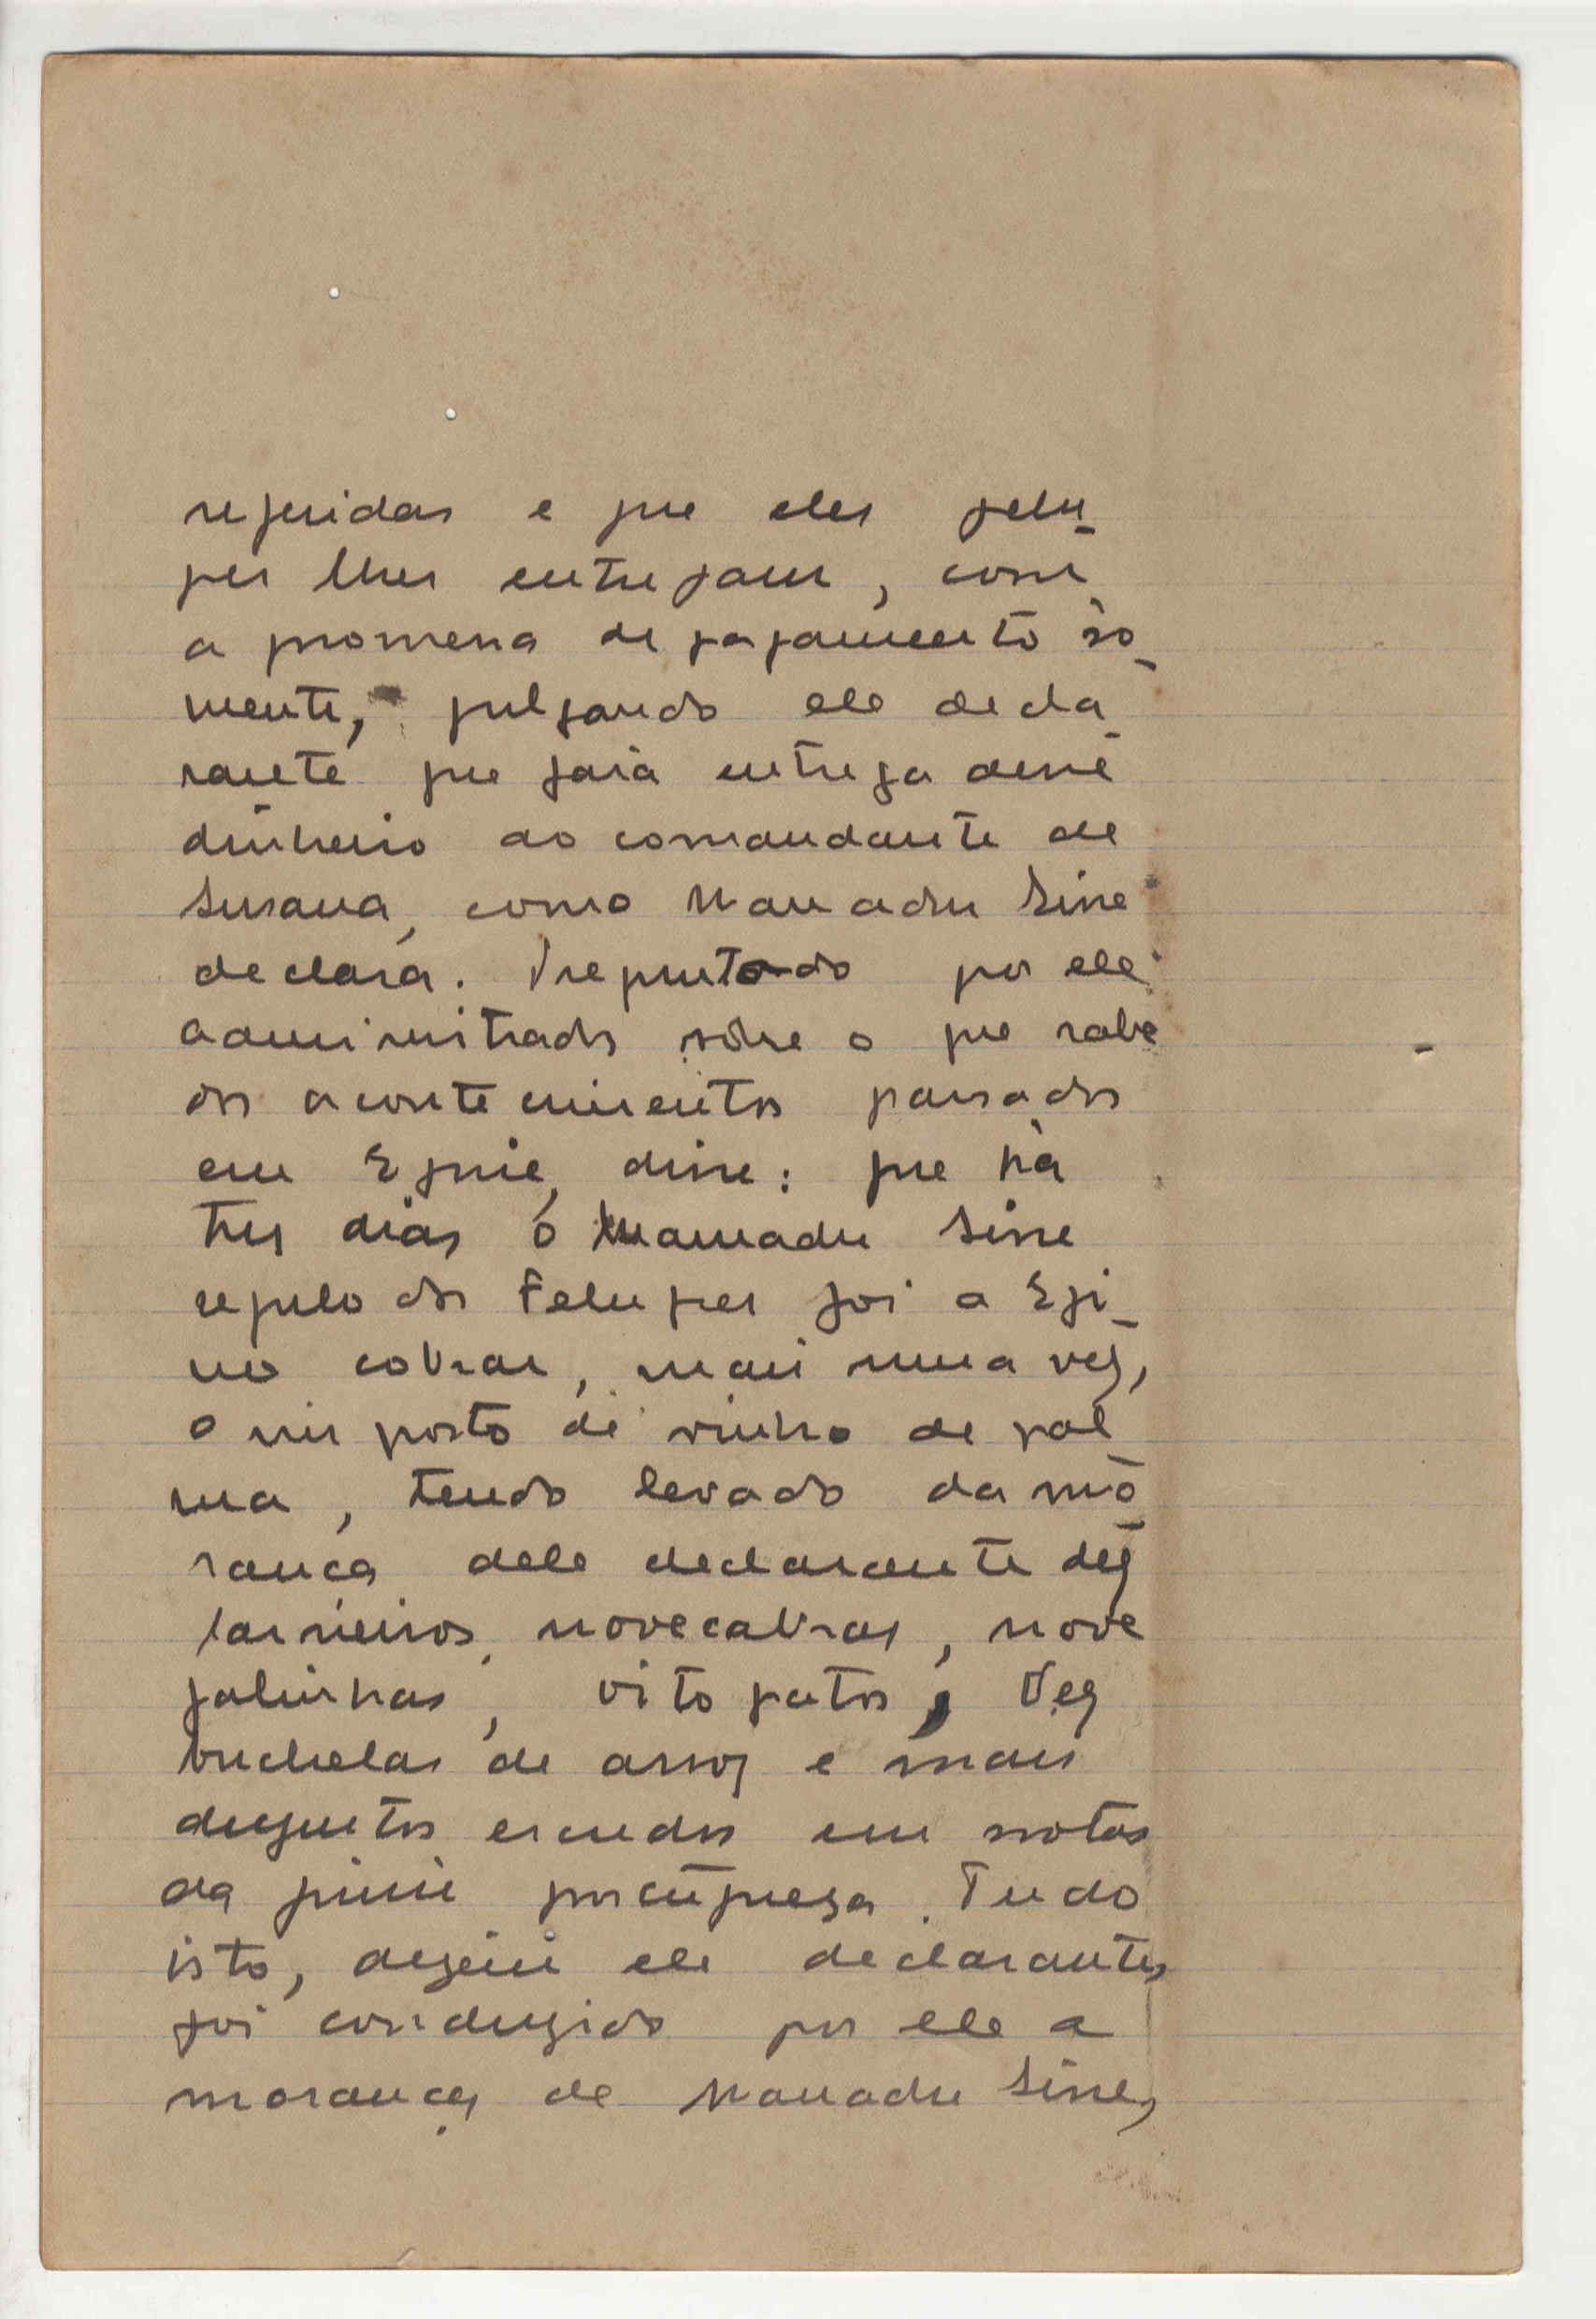 referidas e que eles felu_
pes lhes entregam, com
a promessa de pagamento sò_
mente, julgando ele decla_
rante que fará entrega desse
dinheiro ao comandante de
Susana, como Mamadu Sine
declara. Preguntado por ele
administrador sôbre o que sabe
dos acontecimentos passados
em Eguie, disse: que há
tres dias o Mamadu Sine
regulo dos Felupes foi a Egi_
no cobrar, mais uma vez,
o imposto de vinho de pal_
ma, tendo levado da mo_
rança dele declarante dez
carneiros, nove cabras, nove
galinhas, oito patos, dez
buchelas de arroz e mais
duzentos escudos em notas
da guiné portugueza. Tudo
isto, dezem ele declarante,
foi conduzido por ele a
morança de Mamadu Sine,